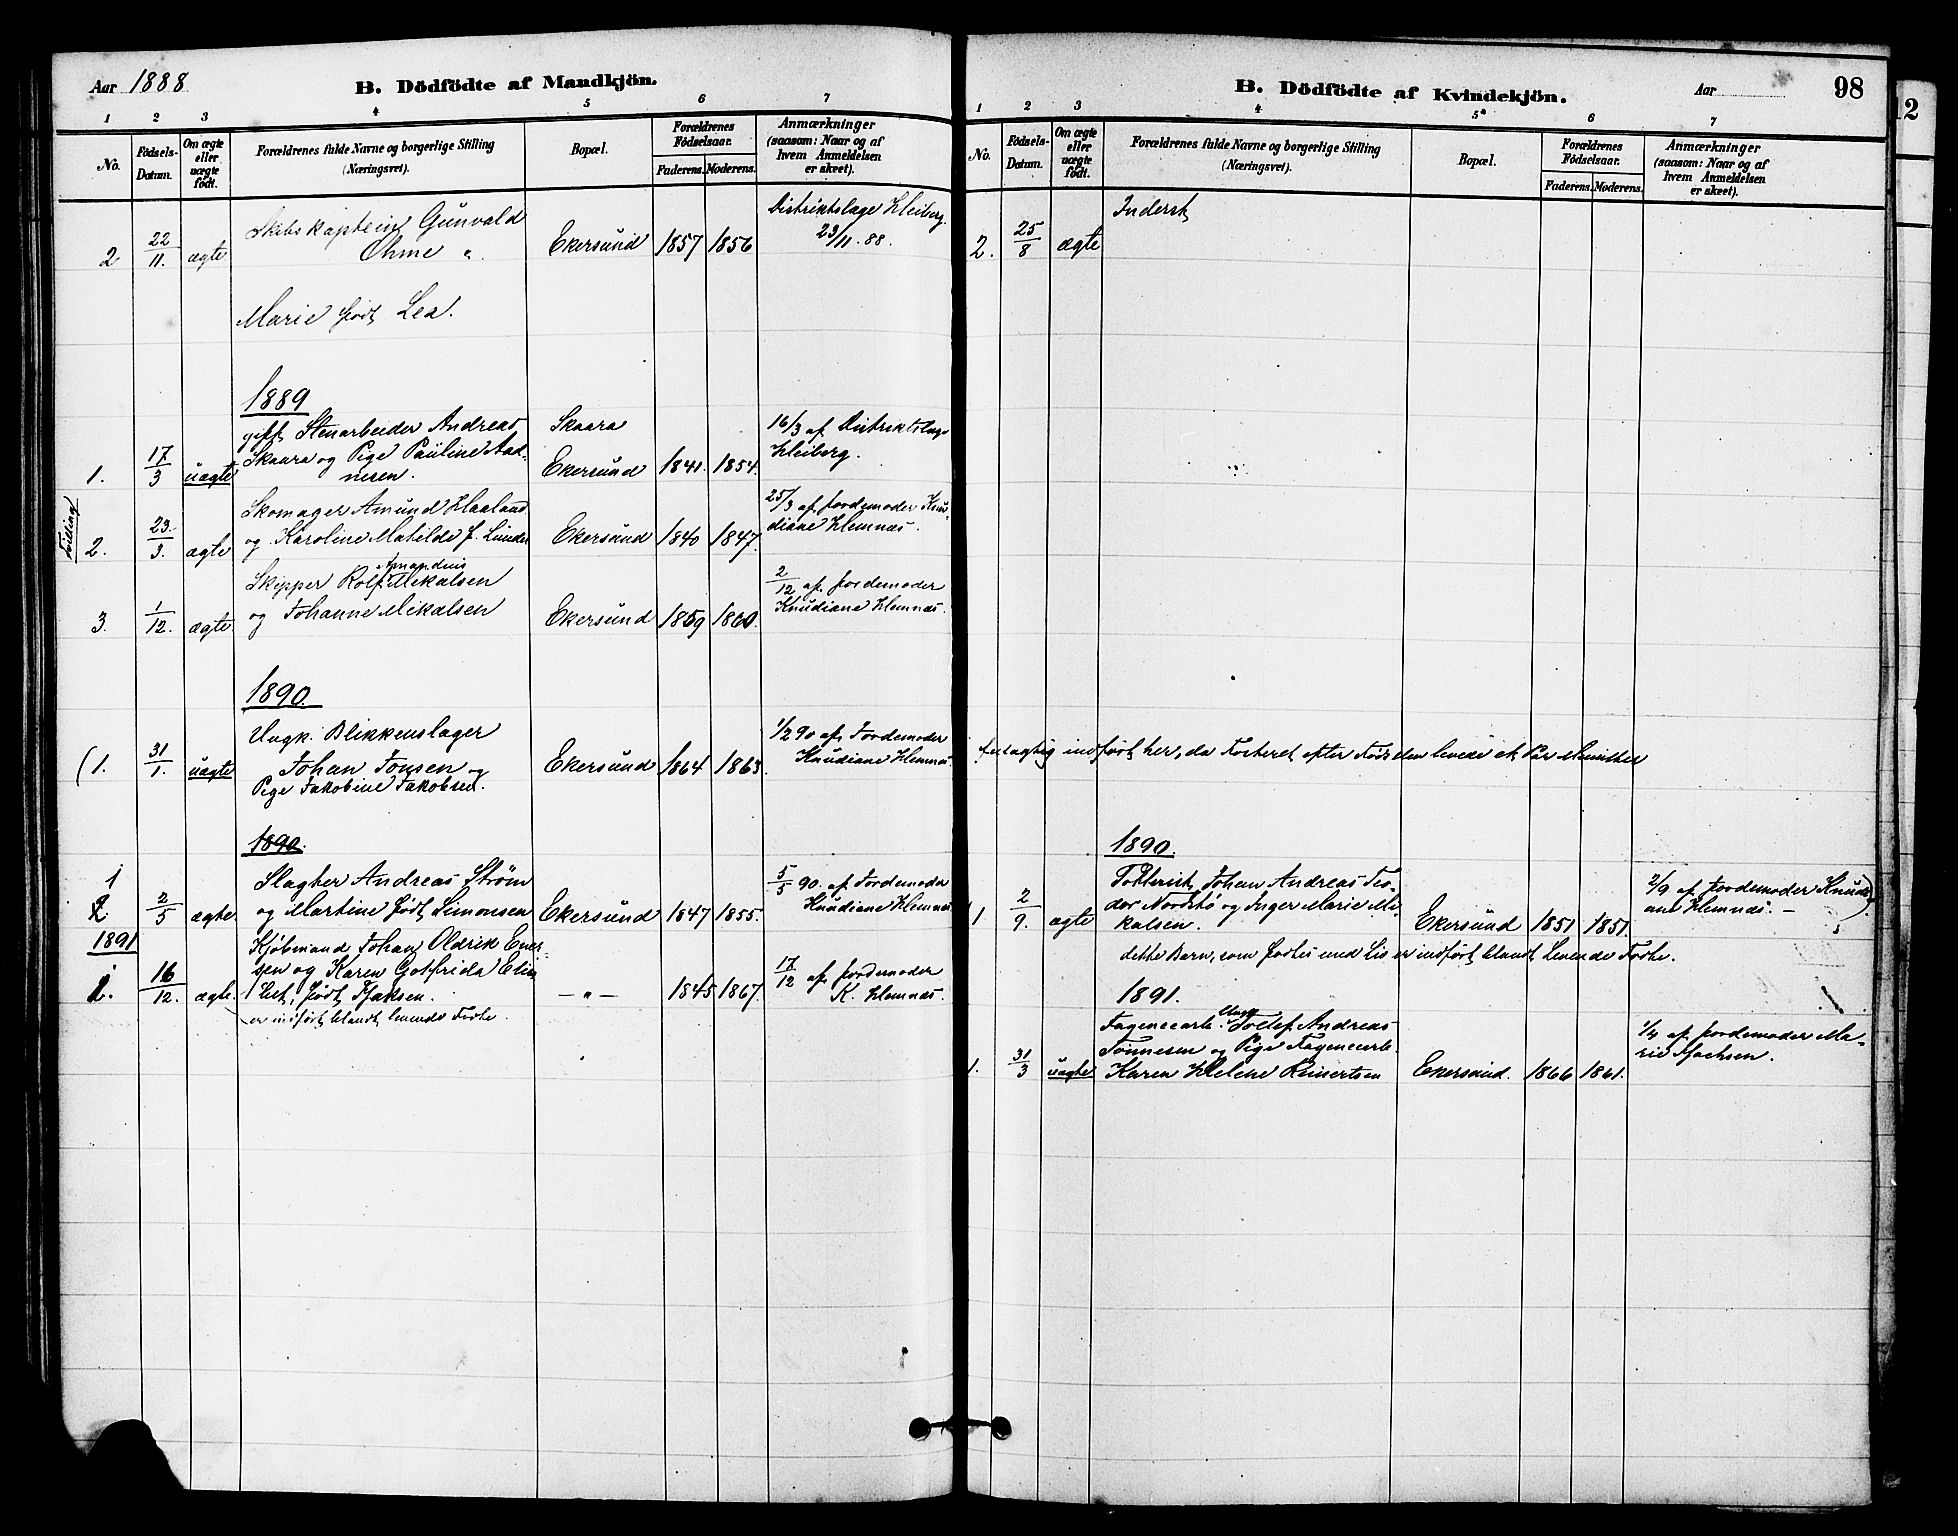 Aar 1888
B. Dödfödte af Mandkjön.
1 2 3 4 5 6 7
No.
Födsels-Datum.
Om ægte eller uægte födt.
Forældrenes fulde Navne og borgerlige Stilling
(Næringsvei).
Bopæl.
Forældrenes Födselsaar.
Faderens. Moderens.
Anmærkninger
(saasom: Naar og af
hvem Anmeldelsen
er skeet).
Skibskaptein Gunvald
Distriktslæge Kleiberg
2 22/11. ægte Ohme „ Ekersund 1857 1856 23/11. 88.
Marie født Lea.
1889
gift Stenarbeider Andreas Skaara 16/3 af Distriktslæge
Skaara og Pige Pauline Aad- Kleiberg.
1. 17/3 uægte nesen. Ekersund 1841. 1854.
Tvilling
Skomager Amund Haaland 25/3 af Jordemoder Knu-
2. 23./3. ægte og Karoline Matilde f. Lunde Ekersund 1840 1847. diane Hemnæs.
Amandius
Skipper Rolf Mikalsen 2/12 af Jordemoder
og Johanne Mikalsen Knudiane Hemnæs.
3. 1/12. ægte Ekersund 1859 1860.
1890.
Ungk. Blikkenslager 1/2 90 af Jordemoder
(1. 31/1. uægte Johan Jonsen og Ekersund 1864 1863. Knudiane Hemnæs
Pige Jakobine Jakobsen.
1890.
1
Slagter Andreas Strøm 5/5 90. af Jordemoder
2 2/5 ægte og Martine født Simonsen Ekersund 1847 1855. Knudiane Hemnæs
1891
Kjøbmand Johan Oldrik Ener-
sen og Karen Gotfrida Elin 17/12 af Jordemoder
1. 16/12. ægte. født Tjaksen. — „ — 1845 1867. K. Hemnæs.
er indført blandt levende Fødte.
B. Dödfödte af Kvindekjön.
Aar
98
12
1 2 3 4 5ª 6 7
No.
Födsels-Datum.
Om ægte eller uægte födt.
Forældrenes fulde Navne og borgerlige Stilling
(Næringsvei).
Bopæl.
Forældrenes Födselsaar.
Faderens. Moderens.
Anmærkninger
(saasom: Naar og af
hvem Anmeldelsen
er skeet).
2. 25/8 ægte Inderst
feilagtig indført her, da Fosteret efter Fødselen levede et Par Minutter
1890.
Johan Andreas Teo- 2/9 af Jordemoder Knudi-
dor Nordbø og Inger Marie Mi- ane Hemnæs. —
1. 2/9. ægte kalsen. Ekersund 1851 1851.
dette Barn, som fødtes med Liv er indført blandt Levende Fødte.
1891.
Ungk.
Fayencearb. Tollef Andreas 1/4 af Jordemoder Ma-
Tønnesen og Pige Fayencearb. rie
1. 31/3 uægte Karen Helene Reinertsen Ekersund. 1866 1861.